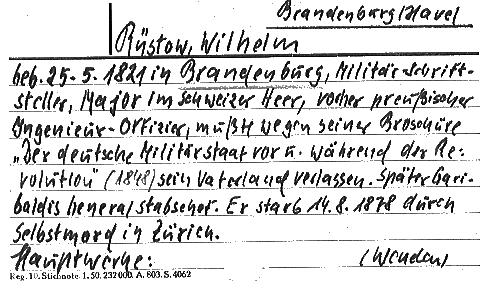 Brandenburg/Havel
Rüstow, Wilhelm
geb. 25.5.1821 in Brandenburg, Militär-Schrift-
steller, Major im Schweizer Heer, vorher preußischer
Ingenieur-Offizier, mußte wegen seiner Broschüre
„Der deutsche Militärstaat vor u. während der Re-
volution" (1848) sein Vaterland verlassen. Später Gari-
baldis Generalstabschef. Er starb 14.8.1878 durch
Selbstmord in Zürich.
Hauptwerke: (Wenden)
Reg. 10. Stichnote. 1. 50. 232000. A. 803. S. 4062